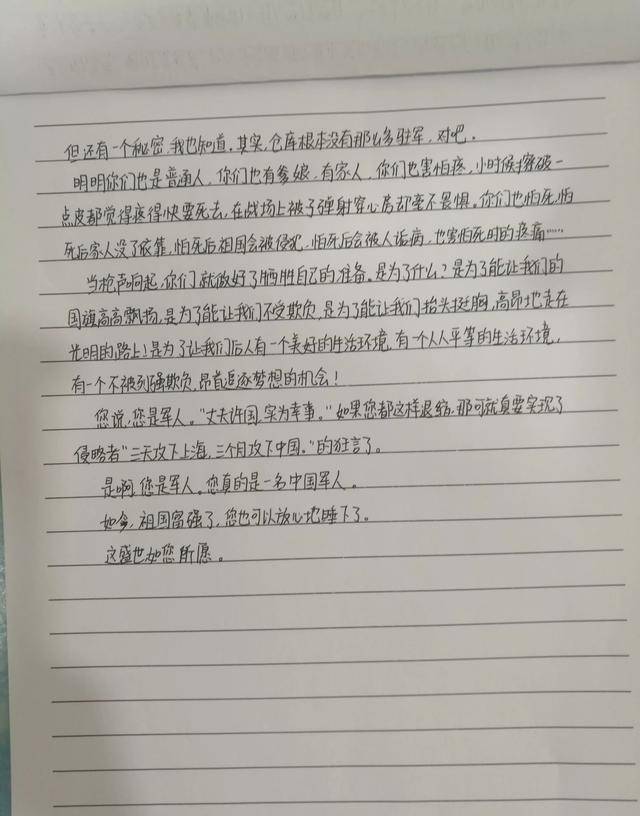 但还有一个秘密,我也知道。其实,仓库根本没有那么多驻军,对吧。
明明你们也是普通人,你们也有爹娘,有家人,你们也害怕疼,小时候擦破一
点皮都觉得疼得快要死去,在战场上被子弹射穿心房却毫不畏惧。你们也怕死,怕
死后家人没了依靠,怕死后祖国会被侵犯,怕死后会被人诟病,也害怕死时的疼痛……
当枪声响起,你们就做好了牺牲自己的准备。是为了什么?是为了能让我们的
国旗高高飘扬,是为了能让我们不受欺负,是为了能让我们抬头挺胸,高昂地走在
光明的路上!是为了让我们后人有一个美好的生活环境,有一个人人平等的生活环境,
有一个不被列强欺负,昂首追逐梦想的机会!
您说,您是军人。"丈夫许国,实为幸事。"如果您都这样退缩,那可就真要实现了
侵略者"三天攻下上海,三个月攻下中国。"的狂言了。
是啊,您是军人。您真的是一名中国军人。
如今,祖国富强了,您也可以放心地睡下了。
这盛世如您所愿。